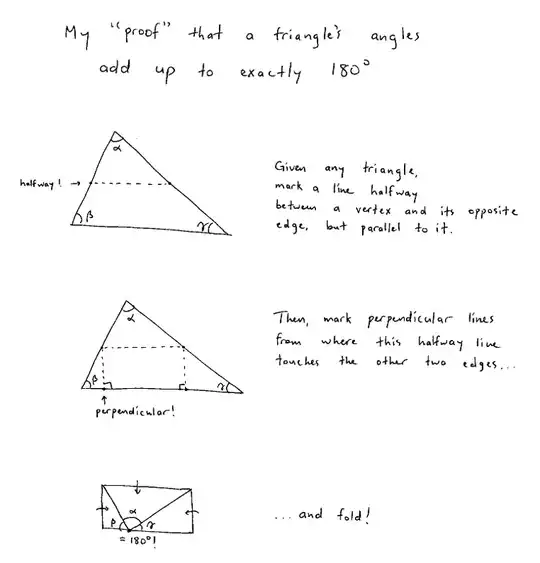 My "proof" that a triangle's angles
add up to exactly 180°
α
halfway! →
β
γ
Given any triangle,
mark a line halfway
between a vertex and its opposite
edge, but parallel to it.
α
β
γ
↑
perpendicular!
Then, mark perpendicular lines
from where this halfway line
touches the other two edges...
β α γ
= 180°!
...and fold!